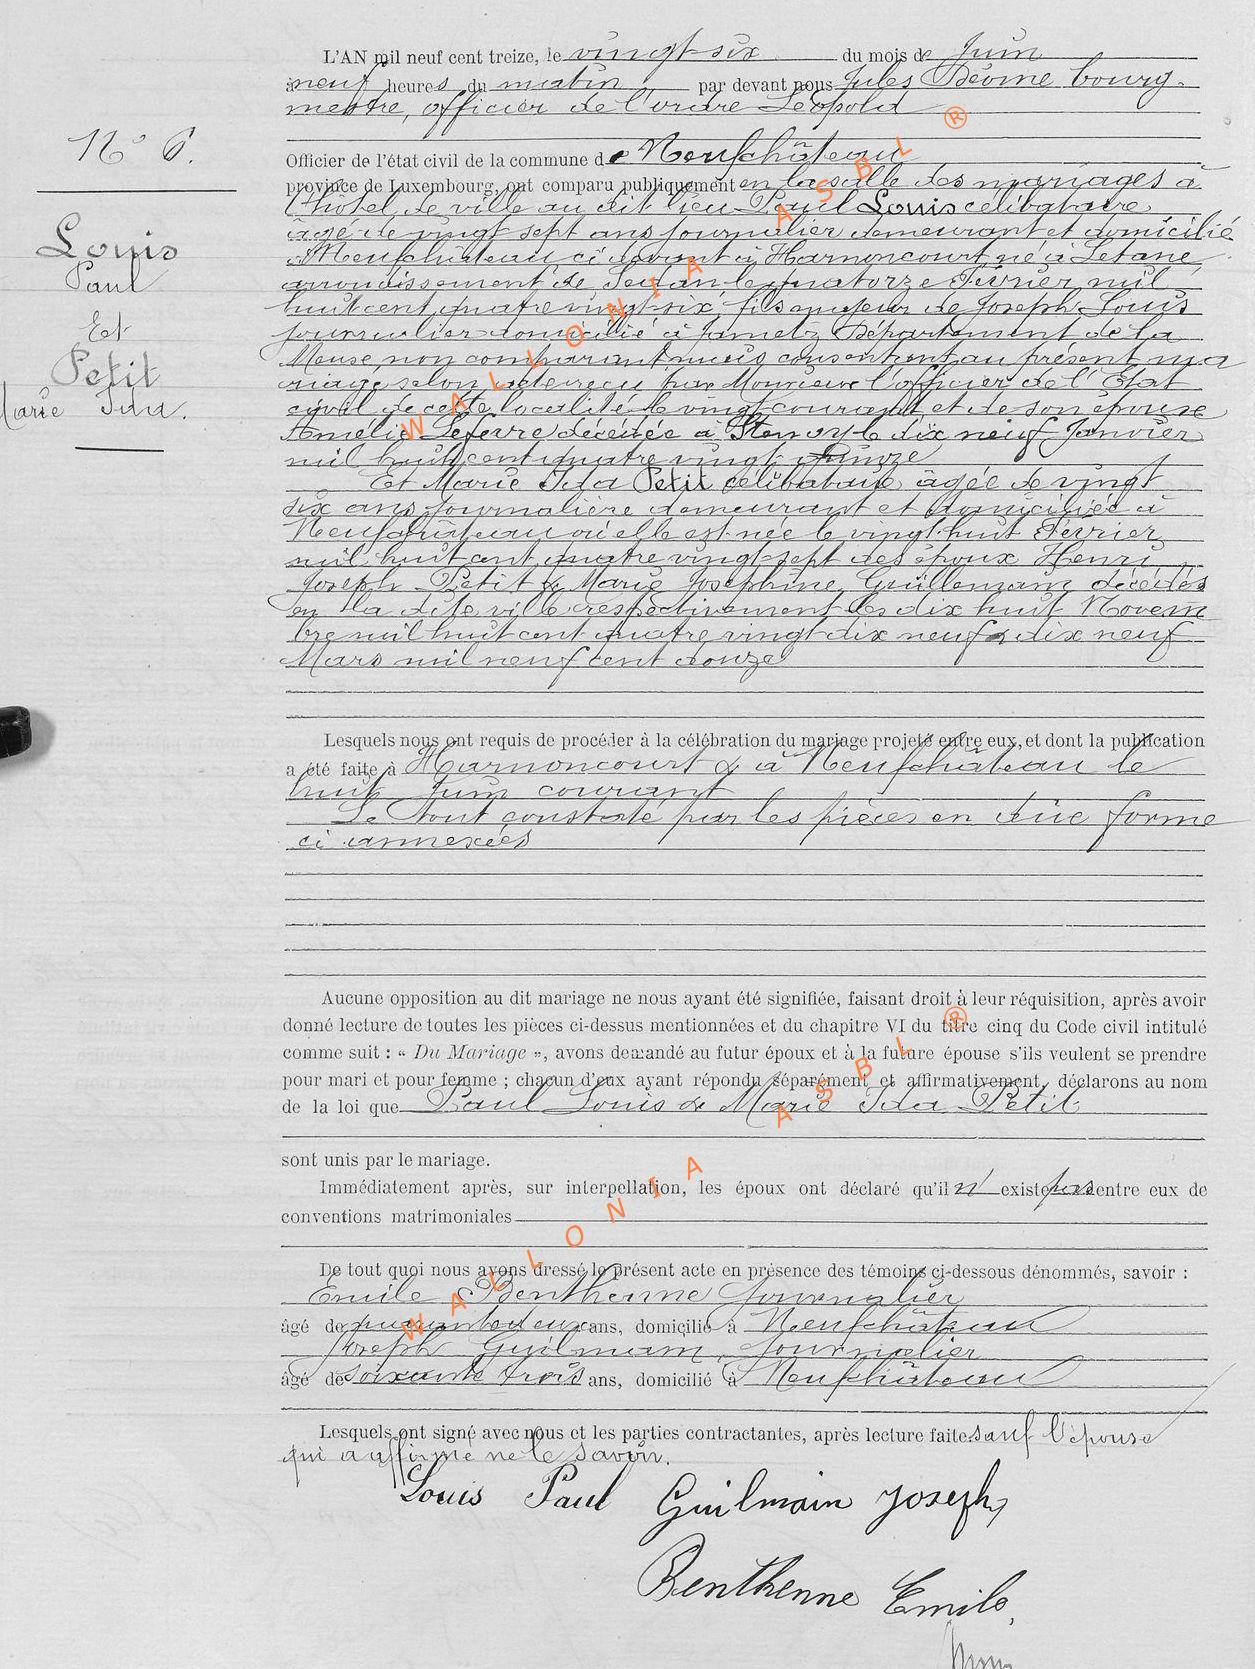 L'AN mil neuf cent treize, le vingt-six du mois de Juin
à neuf heures du matin par devant nous Jules bourg-
mestre, officier de l'ordre Léopold
Officier de l'état civil de la commune de Neufchâteau
province de Luxembourg, ont comparu publiquement en la salle des mariages à
l'hôtel de ville au dit lieu Paul Louis célibataire
âgé de vingt sept ans journalier demeurant et domicilié
à Neufchâteau ci devant à Harnoncourt né à Létane,
arrondissement de Sedan le quatorze Février mil
huit cent quatre vingt-six, fils majeur de Joseph Louis
journalier domicilié à Jametz Département de la
Meuse, non comparant mais consentant au présent ma
riage selon acte reçu par Monsieur l'officier de l'Etat
civil de cette localité le vingt courant et de son épouse
Amélie Lefevre décédée à Stenay le dix neuf Janvier
mil huit cent quatre vingt quinze
Et Marie Ida Petit célibataire âgée de vingt
six ans journalière demeurant et domiciliée à
Neufchâteau où elle est née le vingt huit Février
mil huit cent quatre vingt-sept des époux Henri
Joseph Petit & Marie Joséphine Guillemain décédés
en la dite ville respectivement les dix huit Novem
bre mil huit cent quatre vingt dix neuf & dix neuf
Mars mil neuf cent douze
N° 6.
Louis
Paul
Et
Petit
Marie Ida.
Lesquels nous ont requis de procéder à la célébration du mariage projeté entre eux, et dont la publication
a été faite à Harnoncourt & à Neufchâteau le
huit Juin courant
Le tout constaté par les pièces en due forme
ci annexées
Aucune opposition au dit mariage ne nous ayant été signifiée, faisant droit à leur réquisition, après avoir
donné lecture de toutes les pièces ci-dessus mentionnées et du chapitre VI du titre cinq du Code civil intitulé
comme suit : « Du Mariage », avons demandé au futur époux et à la future épouse s'ils veulent se prendre
pour mari et pour femme ; chacun d'eux ayant répondu séparément et affirmativement, déclarons au nom
de la loi que Paul Louis & Marie Ida Petit
sont unis par le mariage.
Immédiatement après, sur interpellation, les époux ont déclaré qu'il n' existe pas entre eux de
conventions matrimoniales
De tout quoi nous avons dressé le présent acte en présence des témoins ci-dessous dénommés, savoir :
Emile Benthenne journalier
âgé de quarante deux ans, domicilié à Neufchâteau
Joseph Guilmain, journalier
âgé de soixante trois ans, domicilié à Neufchâteau
Lesquels ont signé avec nous et les parties contractantes, après lecture faite sauf l'épouse
qui a affirmé ne le savoir.
Louis Paul Guilmain Joseph
Benthenne Emile,
WALLONIA ASBL ®
WALLONIA ASBL ®